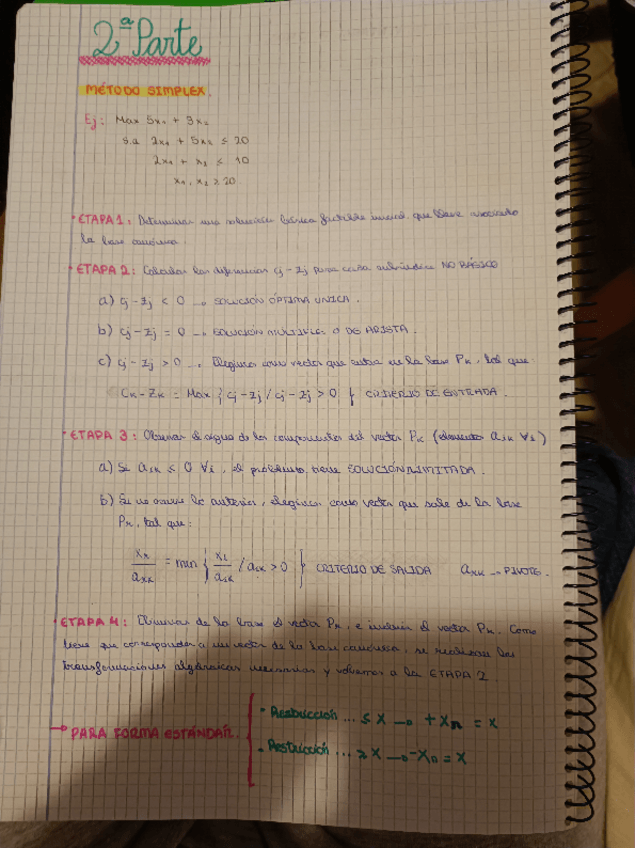 2ª Parte
MÉTODO SIMPLEX.
Ej: Max 5x₁ + 3x₂
s.a 2x₁ + 5x₂ ≤ 20
2x₁ + x₂ ≤ 10
x₁, x₂ ≥ 0
· ETAPA 1: Determinar una solución básica factible inicial, que lleve asociada
la base canónica.
· ETAPA 2: Calcular las diferencias cj - zj para cada subíndice NO BÁSICO
a) cj - zj < 0 → SOLUCIÓN ÓPTIMA UNICA.
b) cj - zj = 0 → SOLUCIÓN MÚLTIPLE O DE ARISTA.
c) cj - zj > 0 → Elegimos como vector que entra en la base Pk, tal que:
Ck - Zk = Max { cj - zj / cj - zj > 0 } CRITERIO DE ENTRADA.
· ETAPA 3: Observar el signo de los componentes del vector Pk (elementos aik ∀i)
a) Si aik ≤ 0 ∀i, el problema tiene SOLUCIÓN ILIMITADA.
b) Si no ocurre lo anterior, elegimos como vector que sale de la base
tal que:
= min { xi / aik / aik > 0 } CRITERIO DE SALIDA → PIVOTE.
· ETAPA 4: de la base el vector e incluir el vector Pk. Como
tiene que corresponder a un vector de la base canónica, se realizan las
transformaciones algebraicas necesarias y volvemos a la ETAPA 2.
→ PARA FORMA ESTÁNDAR.
· Restricción ... ≤ X → + Xn = X
· Restricción ... ≥ X → - Xn = X